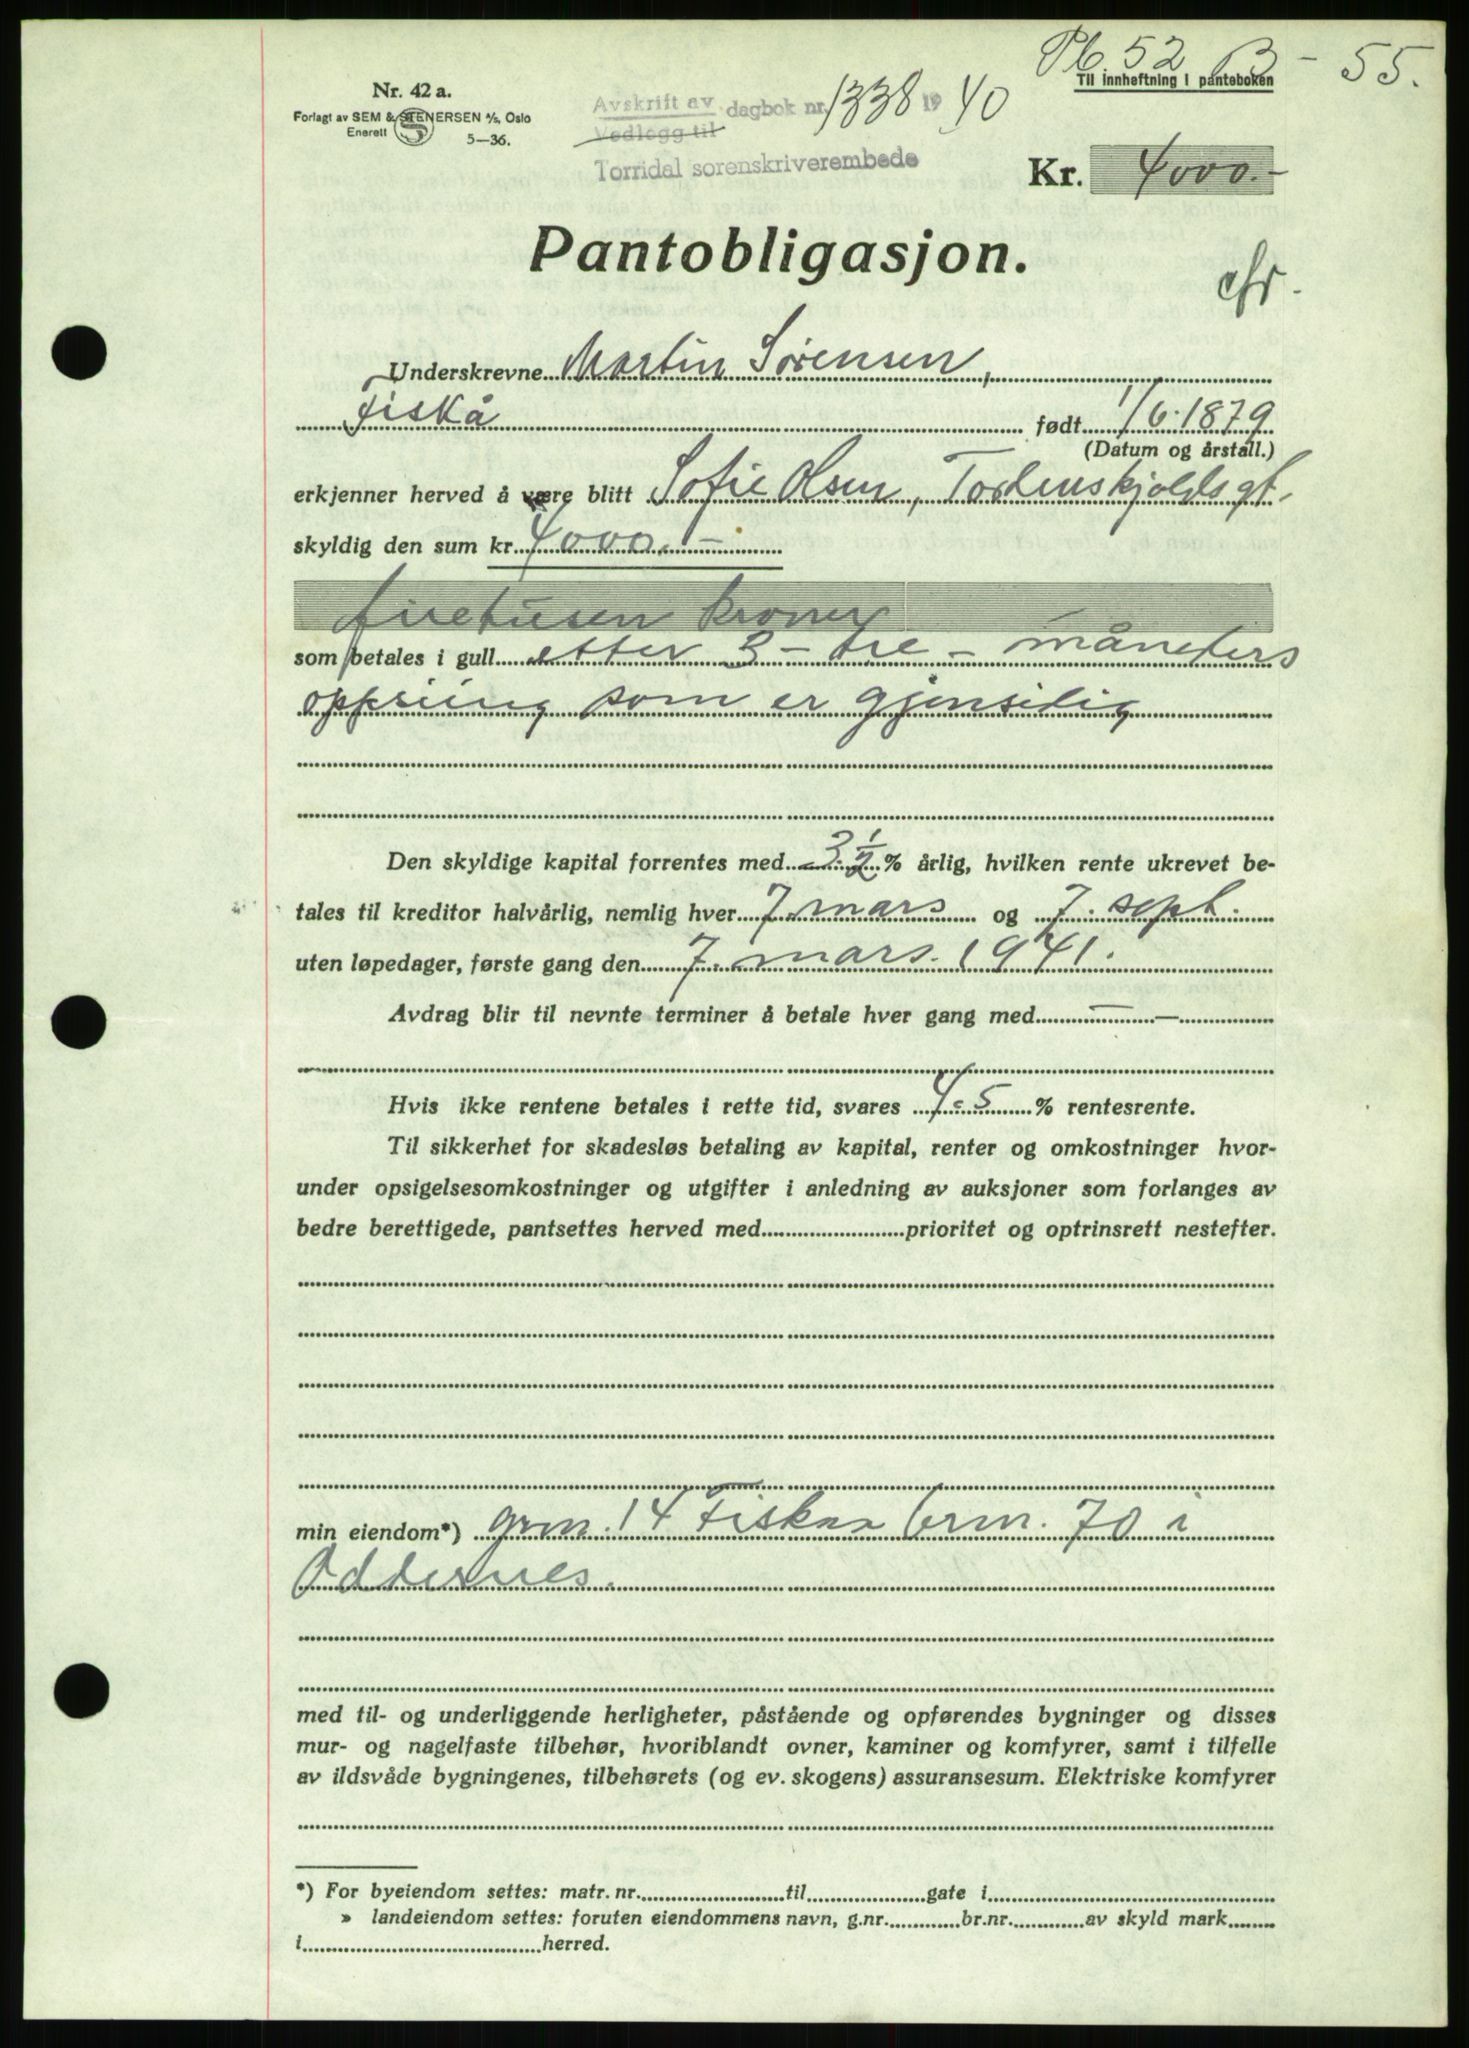 Pb. 52 B - 55.
Til innheftning i panteboken
Nr. 42 a.
Forlagt av SEM & STENERSEN A/S, Oslo
Enerett
5—36.
Avskrift av
Vedlegg til
dagbok nr. 1338 1940
Torridal sorenskriverembede
Kr. 4000.-
Pantobligasjon.
Underskrevne Martin Sørensen,
Fiskå født 1/6. 1879
(Datum og årstall.)
erkjenner herved å være blitt Sofie Olsen, Tordenskjoldsgt.
skyldig den sum kr. 4000.-
firetusen kroner
som betales i gull etter 3 - tre - måneders
oppsiing som er gjensidig
Den skyldige kapital forrentes med 3 ½ % årlig, hvilken rente ukrevet be-
tales til kreditor halvårlig, nemlig hver 7. mars og 7. sept.
uten løpedager, første gang den 7. mars. 1941.
Avdrag blir til nevnte terminer å betale hver gang med — —
Hvis ikke rentene betales i rette tid, svares 4.5 % rentesrente.
Til sikkerhet for skadesløs betaling av kapital, renter og omkostninger hvor-
under opsigelsesomkostninger og utgifter i anledning av auksjoner som forlanges av
bedre berettigede, pantsettes herved med prioritet og optrinsrett nestefter.
min eiendom*) grn. 14 Fiskaa brn. 70 i
Oddernes.
med til- og underliggende herligheter, påstående og opførendes bygninger og disses
mur- og nagelfaste tilbehør, hvoriblandt ovner, kaminer og komfyrer, samt i tilfelle
av ildsvåde bygningenes, tilbehørets (og ev. skogens) assuransesum. Elektriske komfyrer
*) For byeiendom settes: matr. nr. til gate i
» landeiendom settes: foruten eiendommens navn, g.nr. br.nr. av skyld mark
i herred.